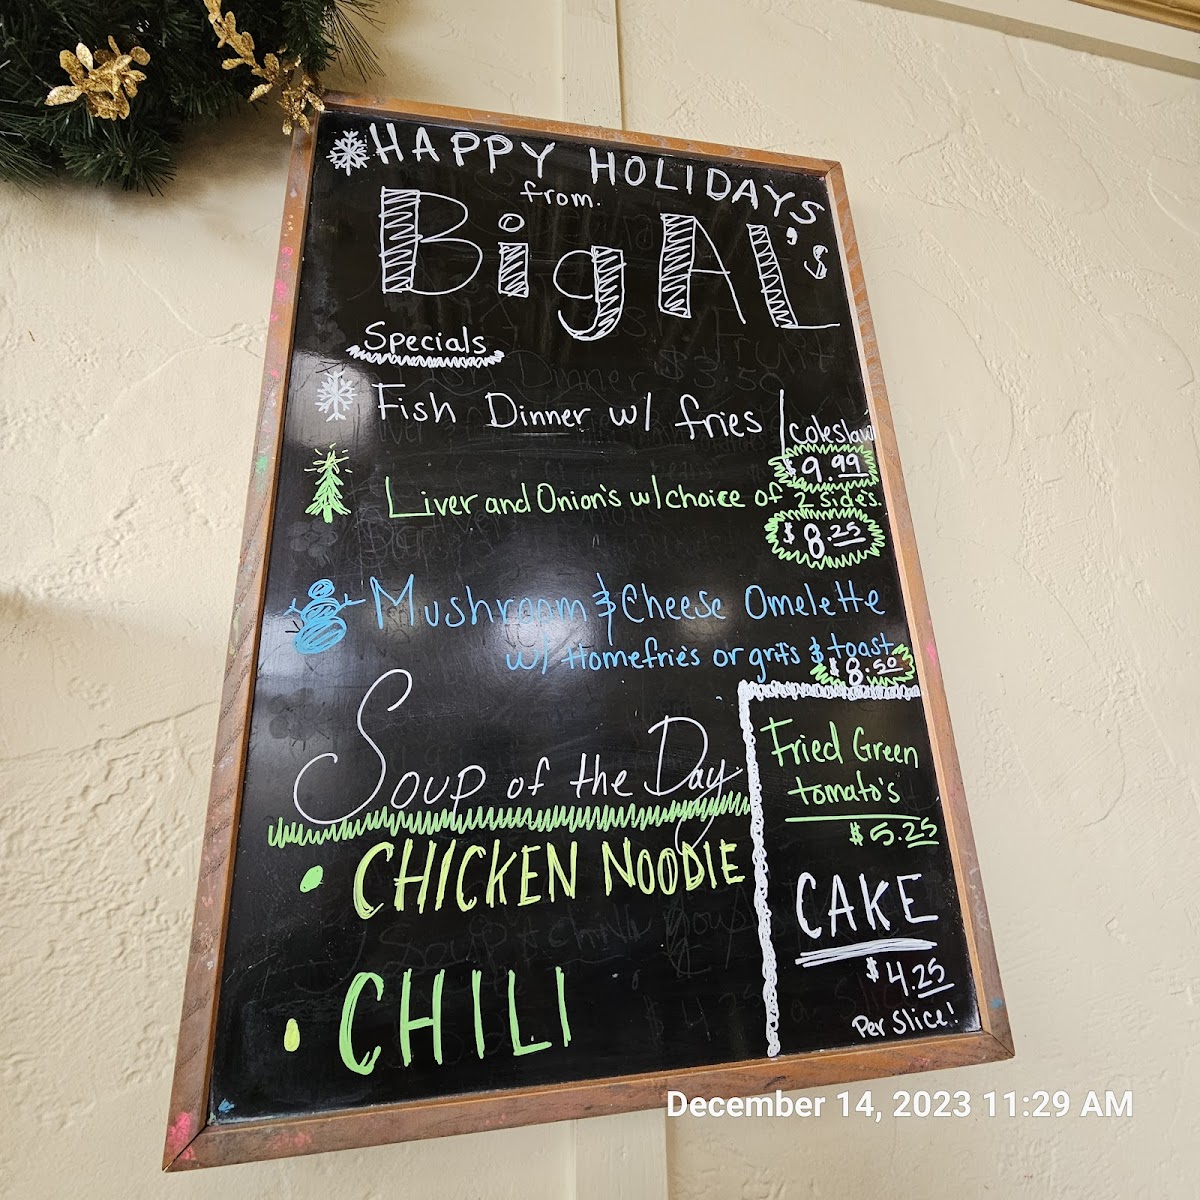 HAPPY HOLIDAYS
from.
Big AL's
Specials
Fish Dinner w/ fries / coleslaw
$9.99
Liver and Onion's w/choice of 2 side's.
$8.25
Mushroom & Cheese Omelette
w/ Homefries or grits & toast
$8.50
Soup of the Day
• CHICKEN NOODLE
• CHILI
Fried Green
tomato's
$5.25
CAKE
$4.25
Per Slice!
December 14, 2023 11:29 AM